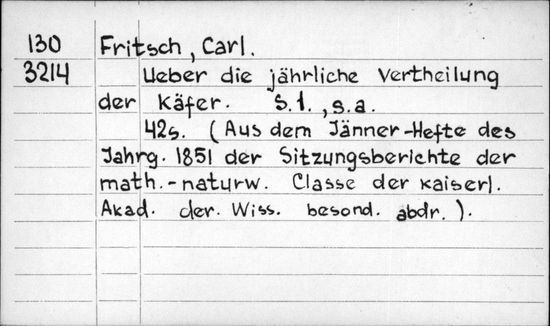 130 Fritsch, Carl.
3214 Ueber die jährliche Vertheilung
der Käfer. S.l., s.a.
42s. (Aus dem Jänner-Hefte des
Jahrg. 1851 der Sitzungsberichte der
math.-naturw. Classe der Kaiserl.
Akad. der. Wiss. besond. abdr.).